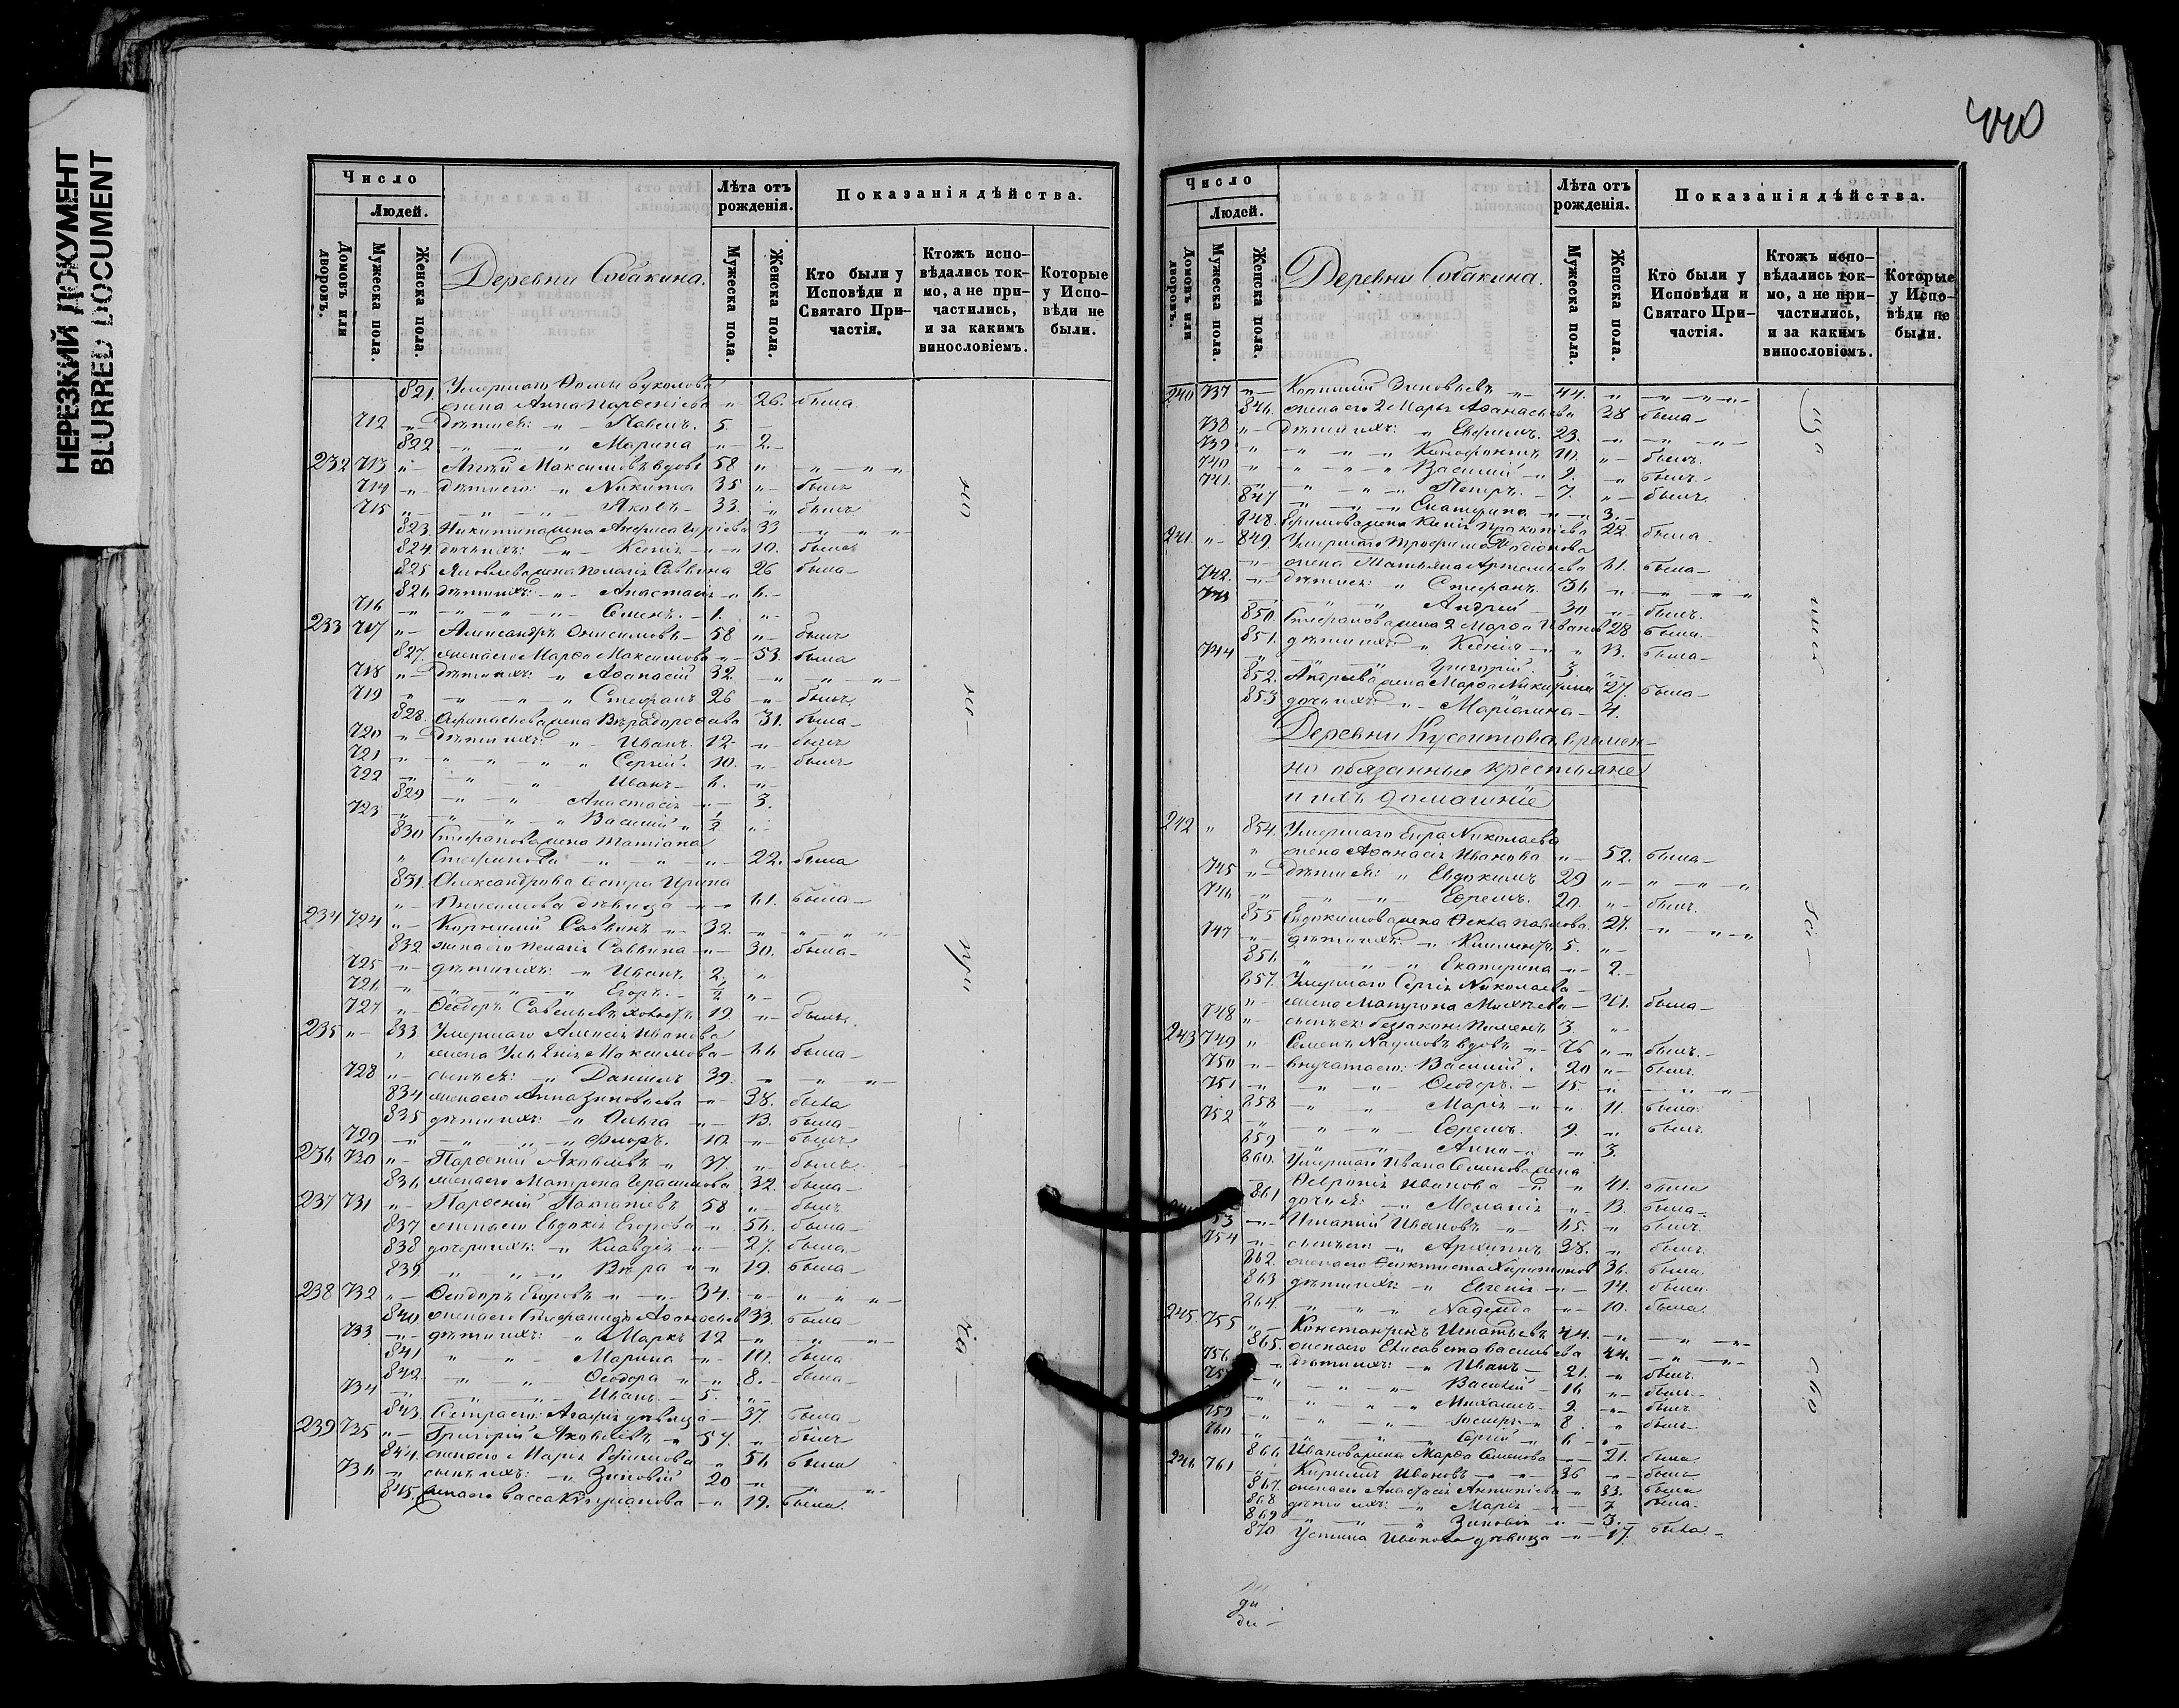 НЕРЕЗКИЙ ДОКУМЕНТ
BLURRED DOCUMENT
Число
Людей.
Домовъ или дворовъ.
Мужеска пола.
Женска пола.
Деревни Собакина.
Лѣта отъ рожденія.
Мужеска пола.
Женска пола.
Показанія дѣйства.
Кто были у Исповѣди и Святаго Причастія.
Ктожъ исповѣдались токмо, а не причастились, и за какимъ винословіемъ.
Которые у Исповѣди не были.
821. Умершаго Ѳомы Вуколова
жена Анна Парѳеніева 26. была
712 дѣти ея: Павелъ. 5
822 Марина 2
232 713 Максимовъ вдовъ 58
714 дѣти его: Никита 35 былъ
715 Яковъ 33. былъ
823. Никитина жена 33
824. дочь ихъ: Ксенія 10. была
825 Яковлева жена Пелагія Саввина 26 была
826 дѣти ихъ: Анастасія 6.
716 Семенъ. 1.
233 717 Александръ Онисимовъ 58 былъ
827. жена его Марѳа Максимова 53. была
718 дѣти ихъ: Аѳанасій 32.
719 Стефанъ 26 былъ
828. Аѳанасьева жена Вѣра 31. была
720 дѣти ихъ: Иванъ. 12 былъ
721 Сергій. 10. былъ
722 Иванъ 6.
829 Анастасія 3.
723 Василій 1/2
830 Стефанова жена Татіана
Стефанова 22. была
831. Александрова сестра Ирина
Онисимова дѣвица 61. была
234 724 Корнилій Саввинъ 32.
832 жена его Пелагія Саввина 30. была
725 дѣти ихъ: Иванъ 2.
726 Егоръ. 1/2
727 Ѳеодоръ Савельевъ 19 былъ
235 833 Умершаго Алексія Иванова
жена Максимова 66 была
728 сынъ ея: Даніилъ 39.
834 жена его Анна Зиновьева 38. была
835 дѣти ихъ: Ольга 13. была
729 Флоръ. 10. былъ
236 730 Парѳеній Яковлевъ 37. былъ
836 жена его Матрона Герасимова 32. была
237 731 Парѳеній 58 былъ
837 жена его Евдокія Егорова 56. была
838 дочери ихъ: Клавдія 27. была
839. Вѣра 19. была
238 732 Ѳеодоръ Егоровъ 34.
840 жена его Стефанида Аѳанасьева 33. была
733 дѣти ихъ: Маркъ 12
841 Марина 10. была
842. Ѳеодора 8. была
734 Иванъ. 5.
843. Сестра его: Агафія дѣвица 37. была
239 735 Григорій Яковлевъ 57. былъ
844. жена его Марія Ефимова 56 была
736 сынъ ихъ: Зиновій 20
845. жена его Васса Кипріанова 19. была
440
Число
Людей.
Домовъ или дворовъ.
Мужеска пола.
Женска пола.
Деревни Собакина.
Лѣта отъ рожденія.
Мужеска пола.
Женска пола.
Показанія дѣйства.
Кто были у Исповѣди и Святаго Причастія.
Ктожъ исповѣдались токмо, а не причастились, и за какимъ винословіемъ.
Которые у Исповѣди не были.
240 737 Корнилій Зиновьевъ 44.
846. жена его 2 Марѳа Аѳанасьева 28 была
738 дѣти ихъ: 23.
739 былъ.
740 Василій 9. былъ.
741. Петръ. 7. былъ
847 Екатерина 3.
848. жена Ксенія Прокопіева 22. была.
241. 849. Умершаго Трофима
жена Татьяна Артемьева 61. была
742. дѣти ея: Стефанъ. 36
743 Андрей 30 былъ.
850. Стефанова жена 2 Марѳа Иванова 28 была.
851. дѣти ихъ: Ксенія 13. была
744 Григорій 3.
852. Андреева жена Марѳа Никитина 27. была
853 дочь ихъ: Маріанна 4.
Деревни Кусеитова, времен-
но обязанные крестьяне
и ихъ домашніе
242 854. Умершаго Николаева
жена Аѳанасія Иванова 52. была
745 дѣти ея: Евдокимъ 29
746 Ефремъ. 20. былъ.
855 Евдокимова жена Ѳекла 27.
747 дѣти ихъ: 5.
856. Екатерина 2.
857. Умершаго Сергія Николаева
жена Матрона 41. была
748 сынъ ея: Пименъ 3.
243 749 Семенъ Наумовъ вдовъ 76 былъ.
750 внучата его: Василій. 20 былъ.
751 Ѳеодоръ. 15.
858 Марія 11. была
752 Ефремъ. 9. былъ
859 Анна 3.
860. Умершаго Ивана Семенова жена
Ѳевронія Иванова 41. была
861 дочь ея: Меланія 13. была.
53 Игнатій Ивановъ 65. былъ
754 сынъ его: Архипъ 38. былъ.
862. жена его Ѳеоктиста 36. была
863 дѣти ихъ: Евгенія 14. была
864. Надежда 10. была
245 755 Константинъ Игнатьевъ 44.
865. жена его Елисавета Васильева 44.
756 дѣти ихъ: Иванъ 21. былъ.
Василій 16 былъ.
Михаилъ 9. былъ
759 8 былъ
760 Сергій 6
866 Иванова жена Марѳа Семенова 21. была
246 761 Кириллъ Ивановъ 36 былъ
867. жена его Анастасія 33. была
868 дѣти ихъ: Марія 7 была
869 Зиновія 3.
870 Устина Иванова дѣвица 17. была